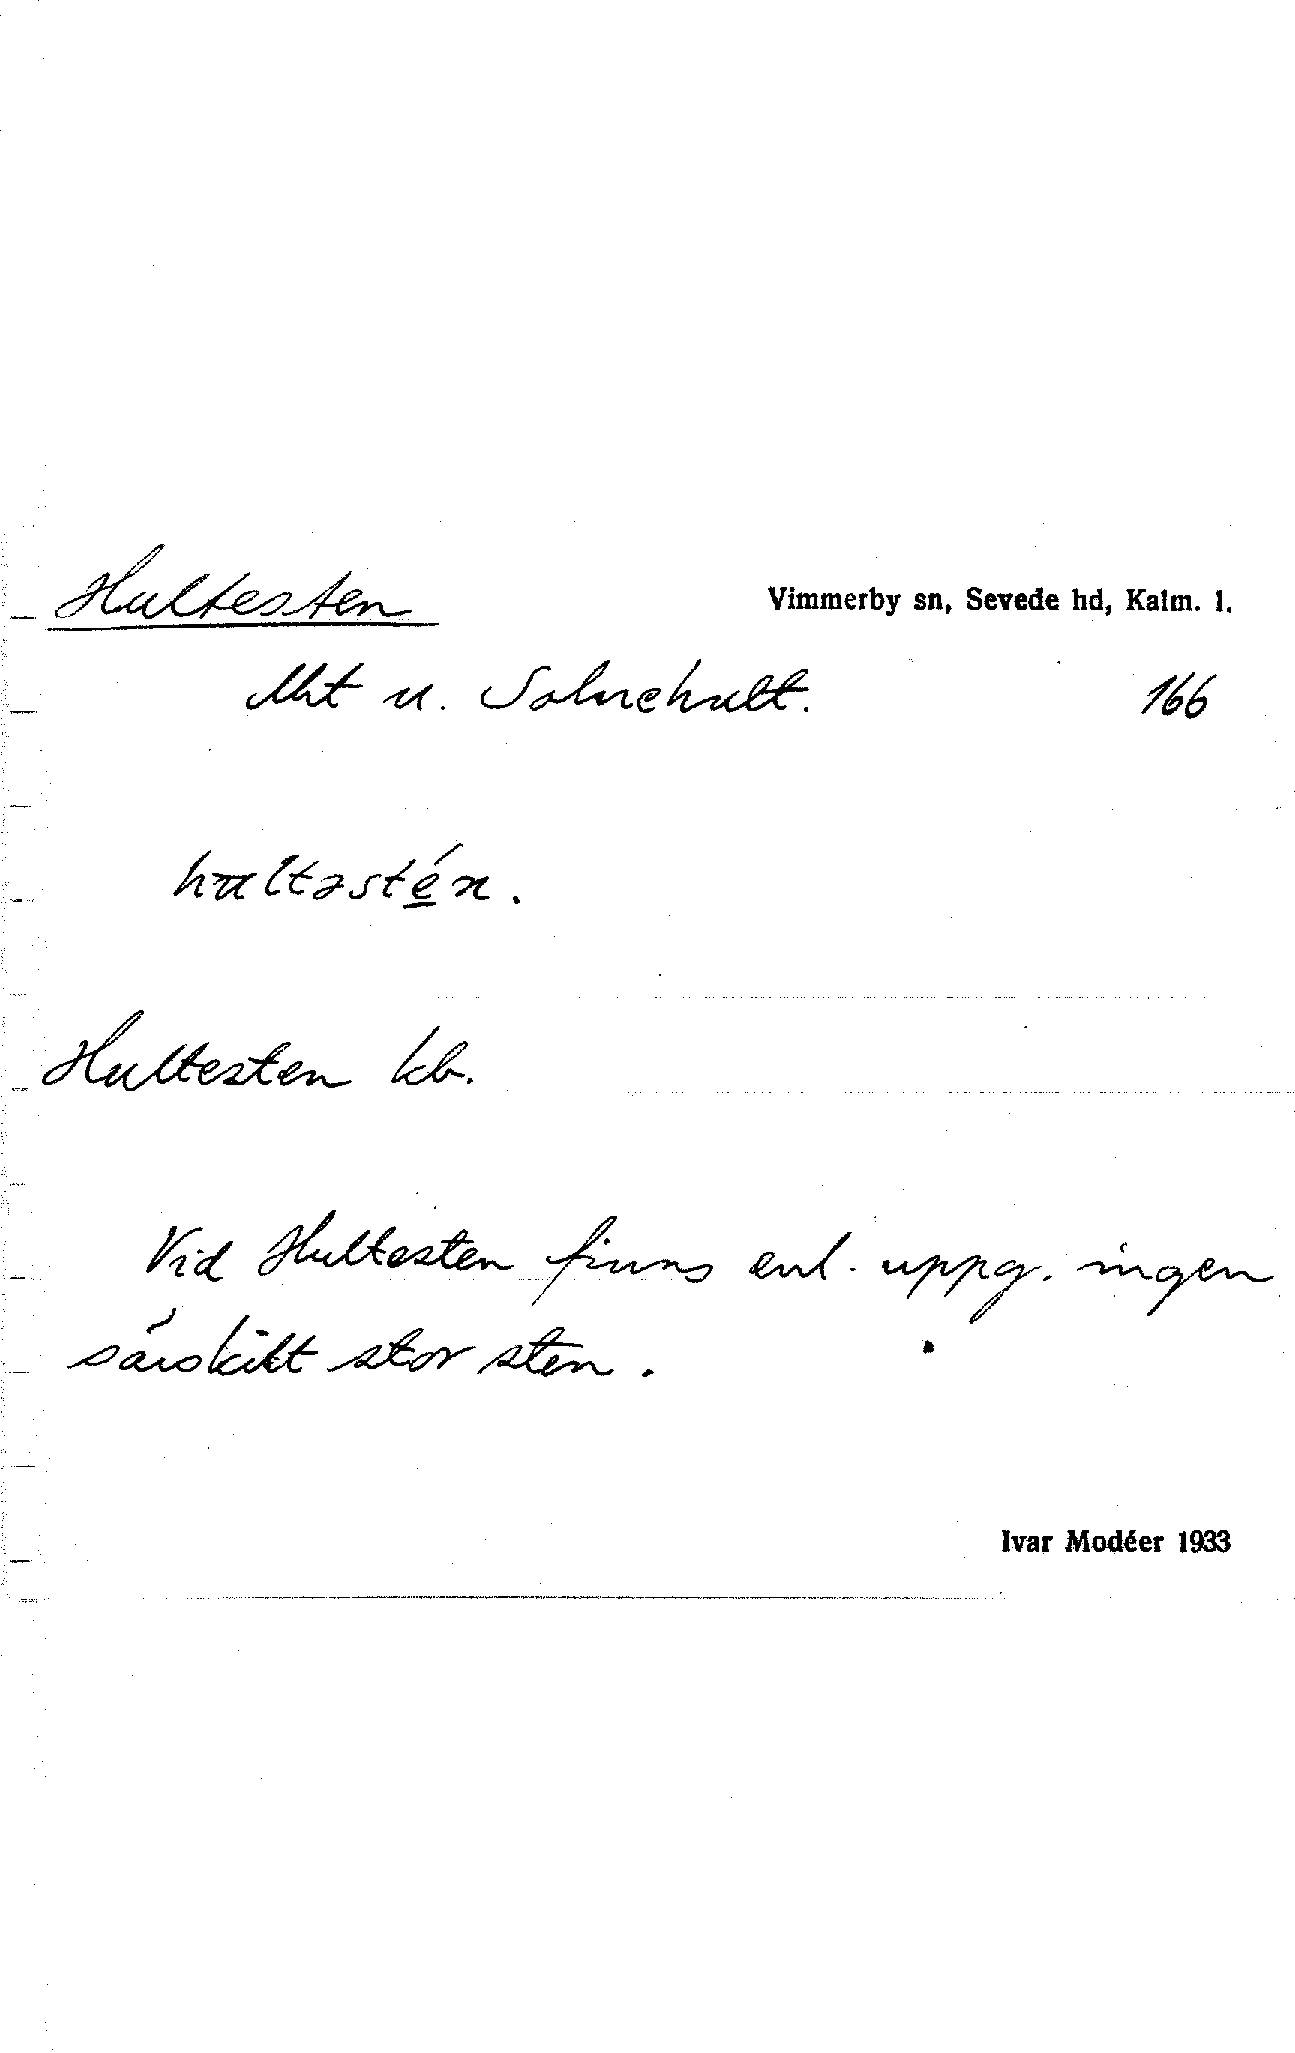 Hultesten Vimmerby sn, Sevede hd, Kalm. l.
lht u. Solnehult. 166
hultəstén.
Hultesten kb.
Vid Hultesten finns enl. uppg. ingen
särskilt stor sten.
Ivar Modéer 1933